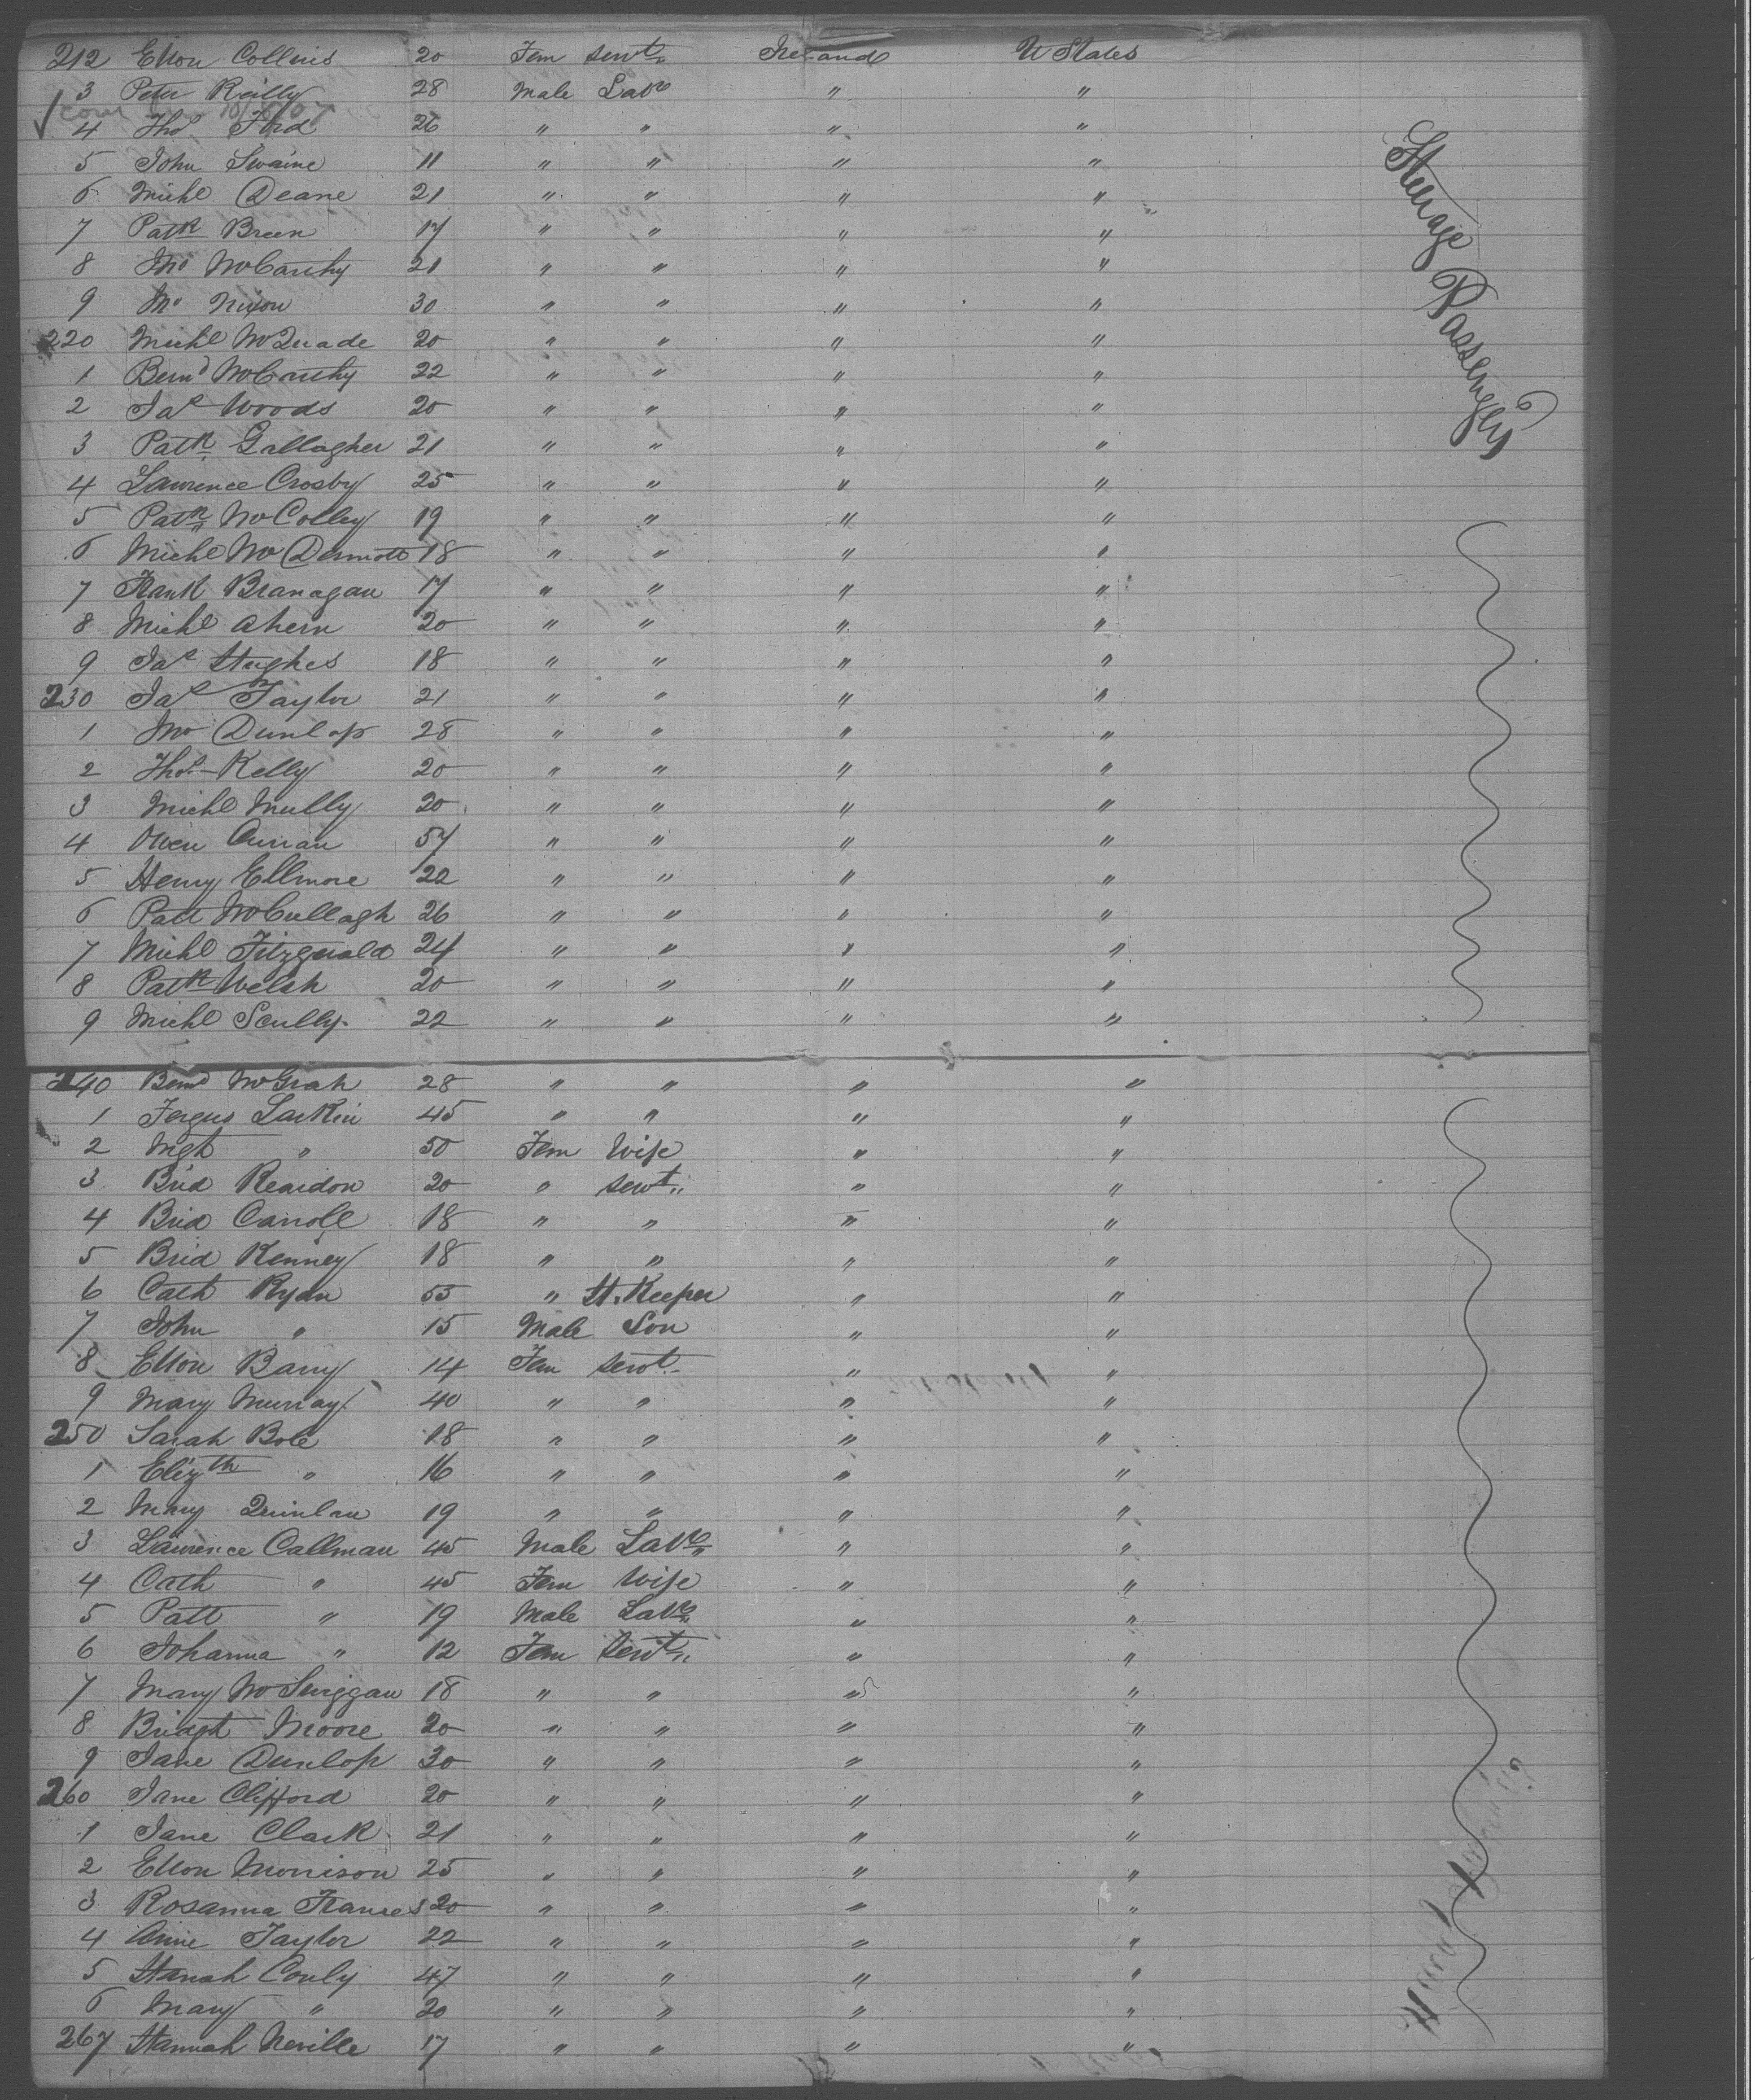 212 Ellen Collins 20 Fem servt. Ireland U States
3 Peter Reilly 28 Male Labr " "
4 Thos Ford 26 " " " "
5 John Swaine 11 " " " "
6 Michl Deane 21 " " " "
7 Patk Breen 17 " " " "
8 Jno McCarthy 21 " " " "
9 Jno Nixon 30 " " " "
220 Michl McQuade 20 " " " "
1 Bernd McCarthy 22 " " " "
2 Jas Woods 20 " " " "
3 Patk Gallagher 21 " " " "
4 Lawrence Crosby 25 " " " "
5 Patk McColley 19 " " " "
6 Michl McDermott 18 " " " "
7 Frank Branagan 17 " " " "
8 Michl Ahern 20 " " " "
9 Jas Hughes 18 " " " "
230 Jas Taylor 21 " " " "
1 Jno Dunlop 28 " " " "
2 Thos Kelly 20 " " " "
3 Michl Mully 20 " " " "
4 Owen Curran 57 " " " "
5 Henry Ellmore 22 " " " "
6 Patt McCullagh 26 " " " "
7 Michl Fitzgerald 24 " " " "
8 Patk Welsh 20 " " " "
9 Michl Scully 22 " " " "
240 Bernd McGrah 28 " " " "
1 Fergus Larkin 45 " " " "
2 Mgt " 50 Fem Wife " "
3 Brid Reardon 20 " servt. " "
4 Brid Carroll 18 " " " "
5 Brid Kenney 18 " " " "
6 Cath Ryan 55 " H. Keeper " "
7 John " 15 Male Son " "
8 Ellen Barry 14 Fem servt. " "
9 Mary Murray 40 " " " "
250 Sarah Bole 18 " " " "
1 Elizth " 16 " " " "
2 Mary Quinlan 19 " " " "
3 Lawrence Callman 45 Male Labr " "
4 Cath " 45 Fem Wife " "
5 Patt " 19 Male Labr " "
6 Johanna " 12 Fem Servt. " "
7 Mary McSwiggan 18 " " " "
8 Bridgt Moore 20 " " " "
9 Jane Dunlop 30 " " " "
260 Jane Clifford 20 " " " "
1 Jane Clark 21 " " " "
2 Ellen Morrison 25 " " " "
3 Rosanna Frances 20 " " " "
4 Annie Taylor 22 " " " "
5 Hanah Conly 47 " " " "
6 Mary " 20 " " " "
267 Hannah Neville 17 " " " "
Steerage Passengers